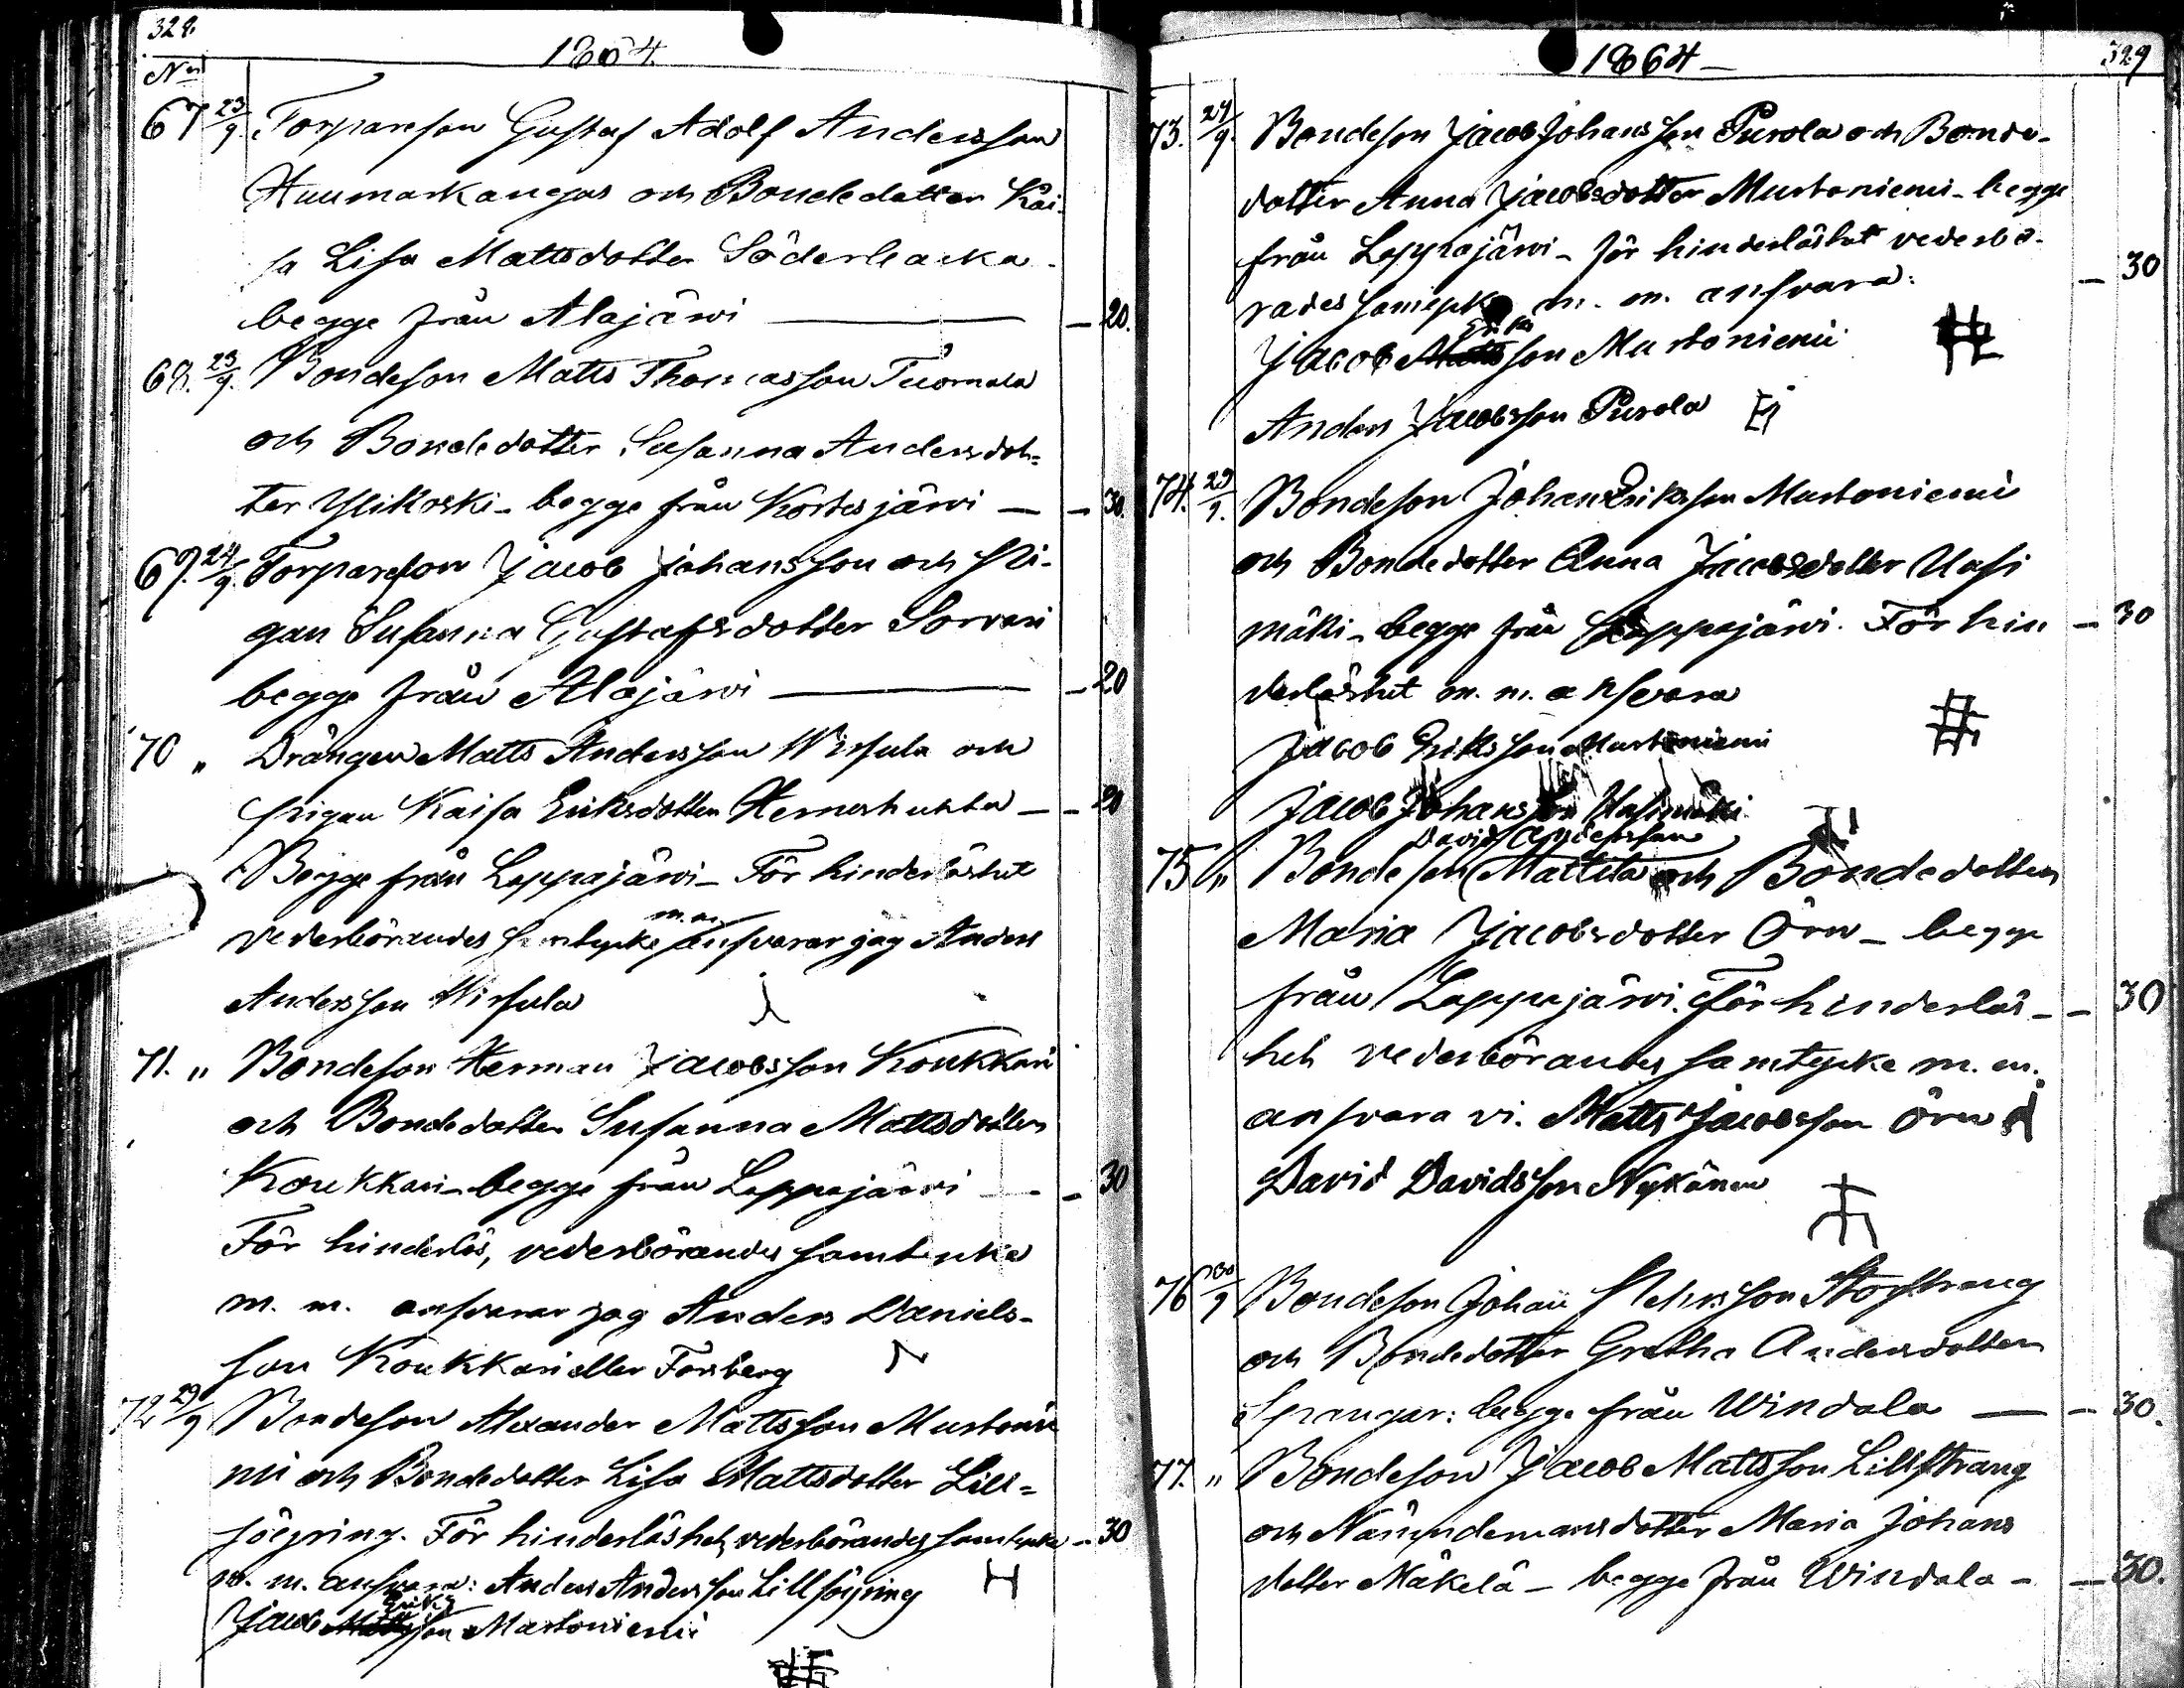 328.
1864.
No
67 23/9. Torpareson Gustaf Adolf Andersson
Huumarkangas och Bondedotter Kai-
sa Lisa Mattsdotter Söderbacka
begge från Alajärvi — 20.
68. 23/9. Bondeson Matts Thomasson Tuomala
och Bondedotter Susanna Andersdot-
ter Ylikoski - begge från Kortesjärvi — - 30.
69. 24/9. Torpareson Jacob Johansson och Pi-
gan Susanna Gustafsdotter Sorvari
begge från Alajärvi — - 20
70 „ Drängen Matts Andersson Wirsula och
pigan Kaisa Eriksdotter Herneshuhta — - 20
Begge från Lappajärvi - För hinderlöshet
m.m.
vederbörandes samtycke ansvarar jag Anders
Andersson Wirsula
71. „ Bondeson Herman Jacobsson Koukkari
och Bondedotter Susanna Mattsdotter
Koukkari - begge från Lappajärvi — - 30
För hinderlös, vederbörandes samtycke
m. m. ansvarar jag Anders Daniels-
son Koukkari eller Forsberg
72 29/9 Bondeson Alexander Mattsson Martonie
mi och Bondedotter Lisa Mattsdotter Lill-
söyring. För hinderlöshet, vederbörandes samtycke - 30
m. m. ansvara: Anders Andersson Lillsöyring
Eriks
Jacob Mattsson Martoniemi
1864 -
329
73. 27/9. Bondeson Jacob Johansson Purola och Bonde-
dotter Anna Jacobsdotter Martoniemi - begge
från Lappajärvi - för hinderlöshet vederbö- - 30
rades samtycke m. m. ansvara:
Eriks
Jacob Mattsson Martoniemi
Anders Jacobsson Purola
74. 29/9. Bondeson Johan Eriksson Martoniemi
och Bondedotter Anna Jacobsdotter Uusi
mäki - begge från Lappajärvi. För hin - 30
derlöshet m. m. ansvara
Jacob Eriksson Martoniemi
Jacob Johansson Uusimäki
David Andersson
75 „ Bondeson Mattila och Bondedotter
Maria Jacobsdotter Örn - begge
från Lappajärvi. För hinderlös- - 30
het vederbörandes samtycke m. m.
ansvara vi. Matts Jacobsson Örn
David Davidsson Nykänen
76 30/9 Bondeson Johan Stehrsson Storstrang
och Bondedotter Gretha Andersdotter
Sprangar: begge från Windala — - 30.
77. „ Bondeson Jacob Mattsson Lillstrang
och Nämndemansdotter Maria Johans
dotter Mäkelä - begge från Windala - - 30.